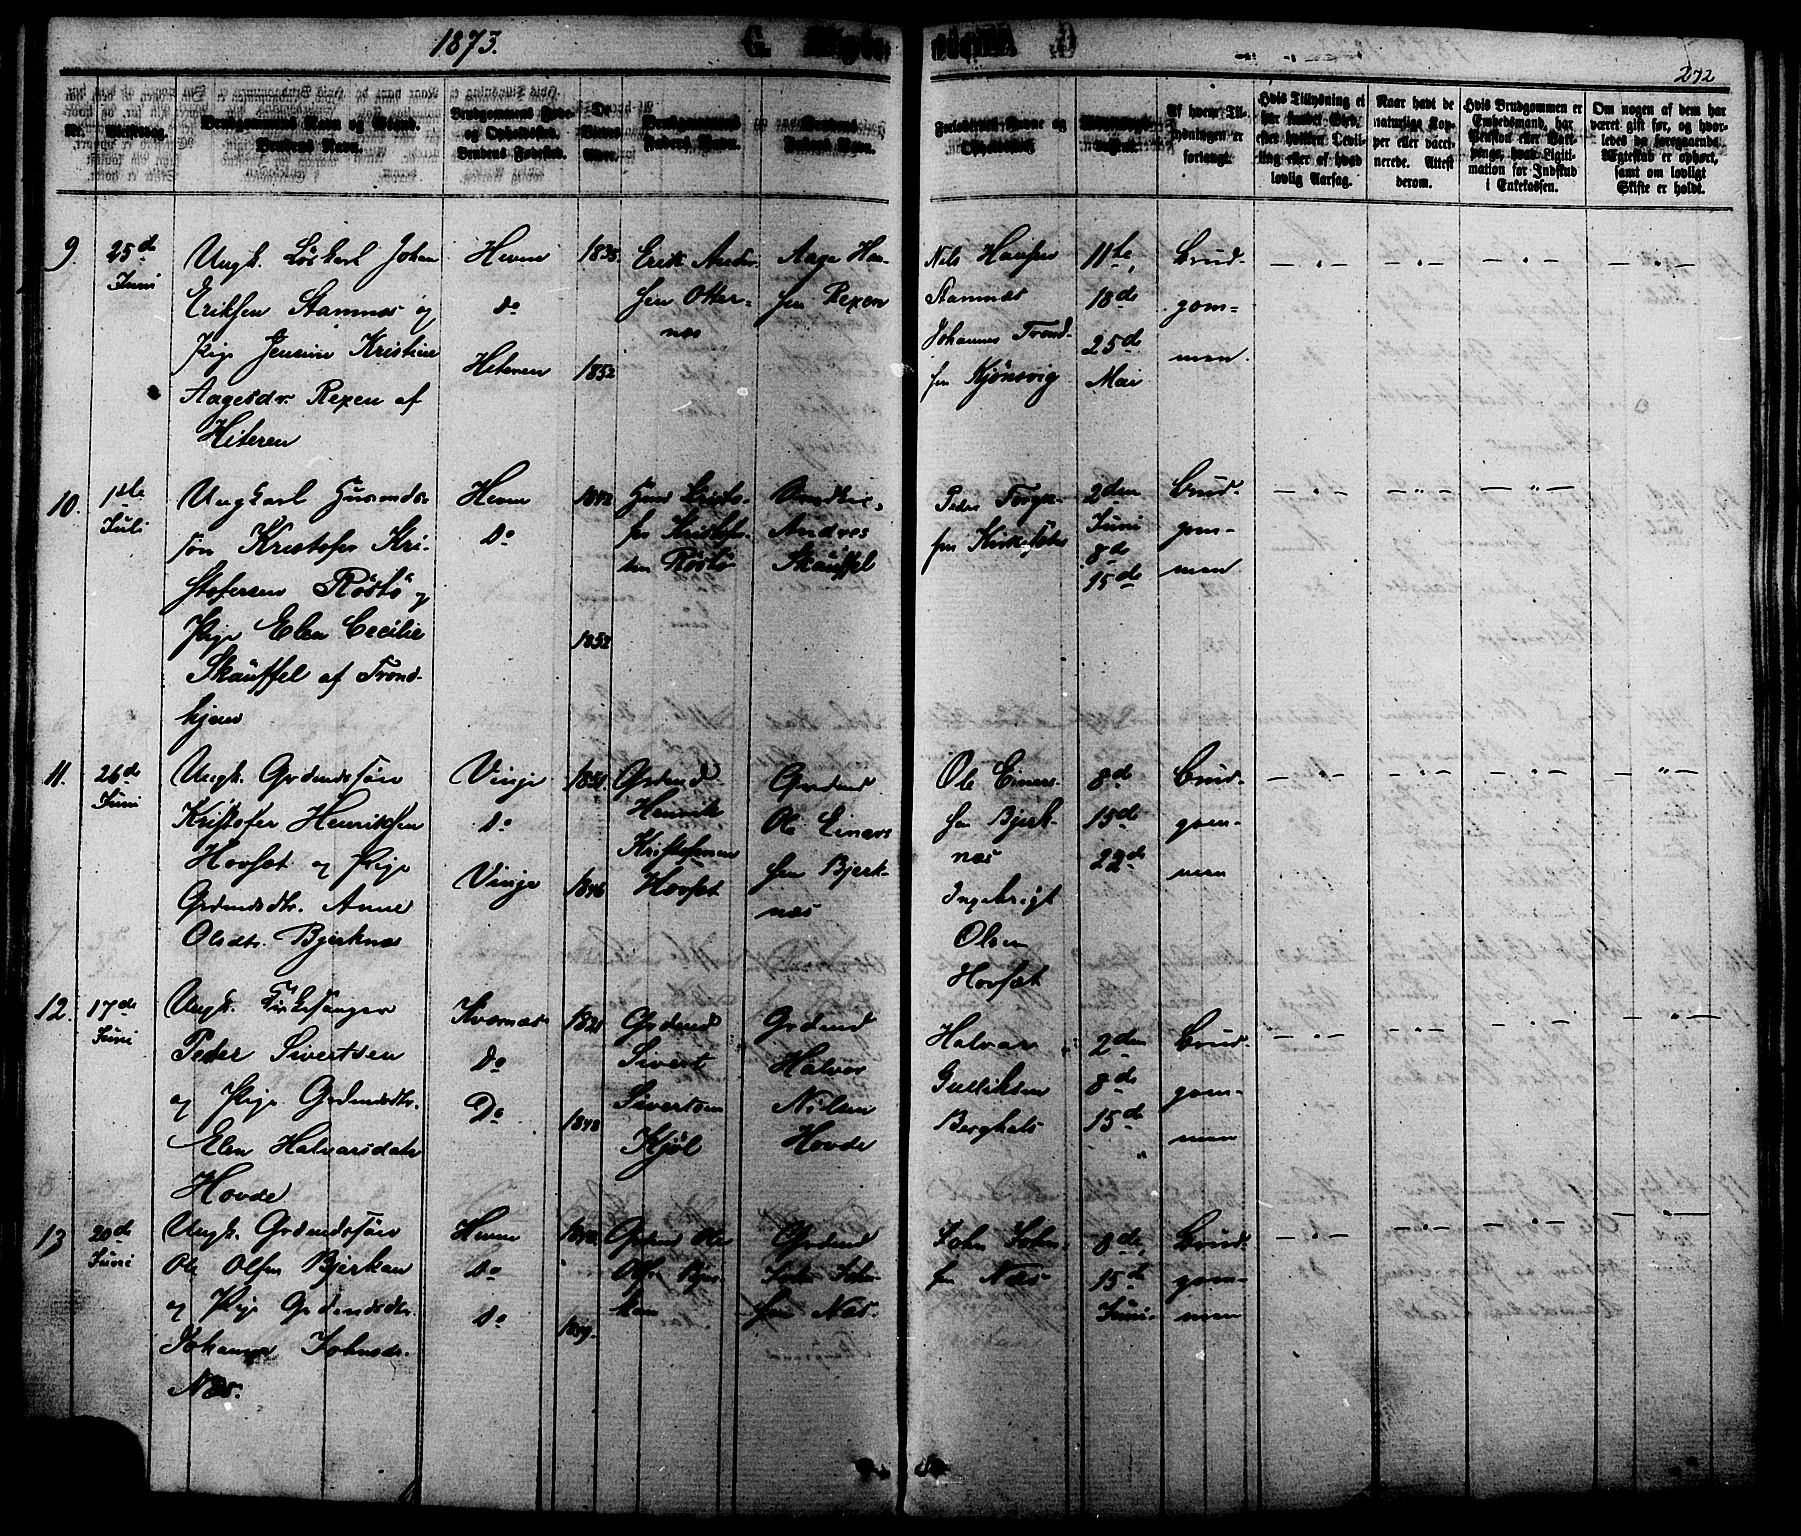 1873.
G.
272
Brudgommens Navn og Stand.
Brudens Navn.
Brudgommens Fødested
og Opholdssted.
Brudens Fødested.
Af hvem Til-
lysningen er
forlangt.
Hvis Tillysning ei
har fundet Sted,
efter hvilken Bevil-
ling eller af hvad
lovlig Aarsag.
Naar havt de
naturlige Kop-
per eller vacci-
nerede. Attest
derom.
Hvis Brudgommen er
Embedsmand, har
Pension eller Vart-
penge, hvad Legiti-
mation for Indskud
i Enkekassen.
Om nogen af dem har
været gift før, og hvor-
ledes da foregaaende
Ægteskab er ophørt,
samt om lovligt
Skifte er holdt.
9. 25de Juni
Ungk. Løskarl Johan
Eriksen Stamnæs og
Pige Jensine Kristine
Aagesdr. Rexen af
Hiteren
Hevne
Do
Hiteren
1838.
1852
Erik Andr.
sen Otter-
næs
Aage Han-
sen Rexen
Nils Hansen
Stamnæs
Johannes Trond-
sen Kjönsvig
11te,
18de
25de
Mai
Brud-
gom-
men.
10. 1ste Juli
Ungkarl Gusmands-
søn Kristofer Kri-
stofersen Röstö og
Pige Elen Cecilie
Skäuffel af Trond-
hjem
Hevne
Do
1842
1852
Kristofer-
sen Röstö
Andres
Skäuffel
Peder
2den
Juni
8de
15de
Brud-
gom-
men
11. 26de Juni
Ungk. Grdmdssøn
Kristofer Henriksen
Hovsæt og Pige
Grdmdsdtr. Anne
Olsdtr. Bjerknæs
Vinje
Do
Vinje
1851.
1846
Grdmd
Henrik
Kristofersen
Hovsæt
Grdmd
Ole Einar-
sen Bjerk-
næs
Ole Einar-
sen Bjerk-
næs
Ingebrigt
Olsen
Hovsæt
8de
15de
22de
Brud-
gom-
men
12. 17de Juni
Ungk. Kirkesanger
Peder Sivertsen
og Pige Grdmdsdtr.
Elen Halvarsdatr
Hovde
Kvernæs
Do
Do
1821
1848
Grdmd
Sivert
Sivertsen
Kjöl
Grdmd
Halvor
Nilsen
Hovde
Halvar
Gulliksen
Berghals
2den
8de
15de
Brud-
gom-
men
13 20de Juni
Ungk. Grdmdssøn
Ole Olsen Bjerkan
og Pige Grdmdsdtr.
Johanna Johnsdr.
Næs.
Hevne
Do
Do
1849.
Grdmd Ole
Olsen Bjer-
kan
Grdmd
John John-
sen Næs.
John John-
sen Næs
8de,
15de
Juni.
Brud-
gom-
men